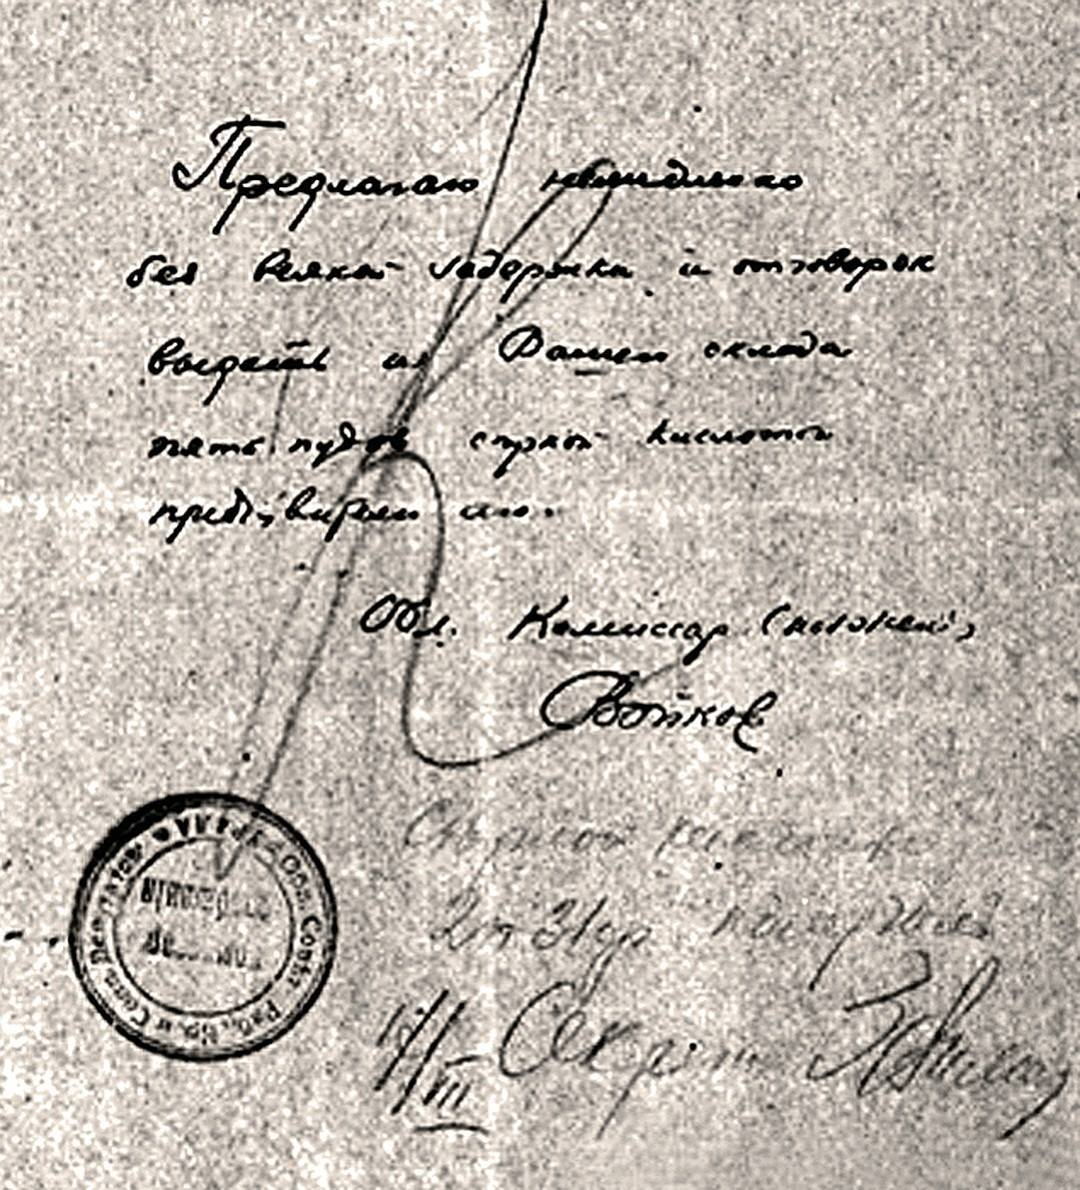 Предлагаю немедленно
без всякой задержки и отговорок
выдать из Вашего склада
пять пудов серной кислоты
предъявителю сего.
Обл. Комиссар Снабжения
Войков
Серной кислоты
2 п 31 ф получил
Секрет
Обл. Совета Раб., Кр. и Солд. Депутатов